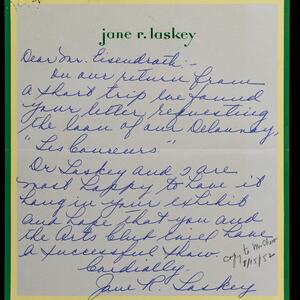 jane r. laskey
Dear Mr. Eisendrath:-
On our return from
a short trip we found
your letter requesting
the loan of our Delaunay,
"Les Coureurs."
Dr Laskey and I are
most happy to have it
hang in your exhibit
and hope that you and
the Arts Club will have
a successful show.
Cordially,
Jane R. Laskey
copy to
8/15/52